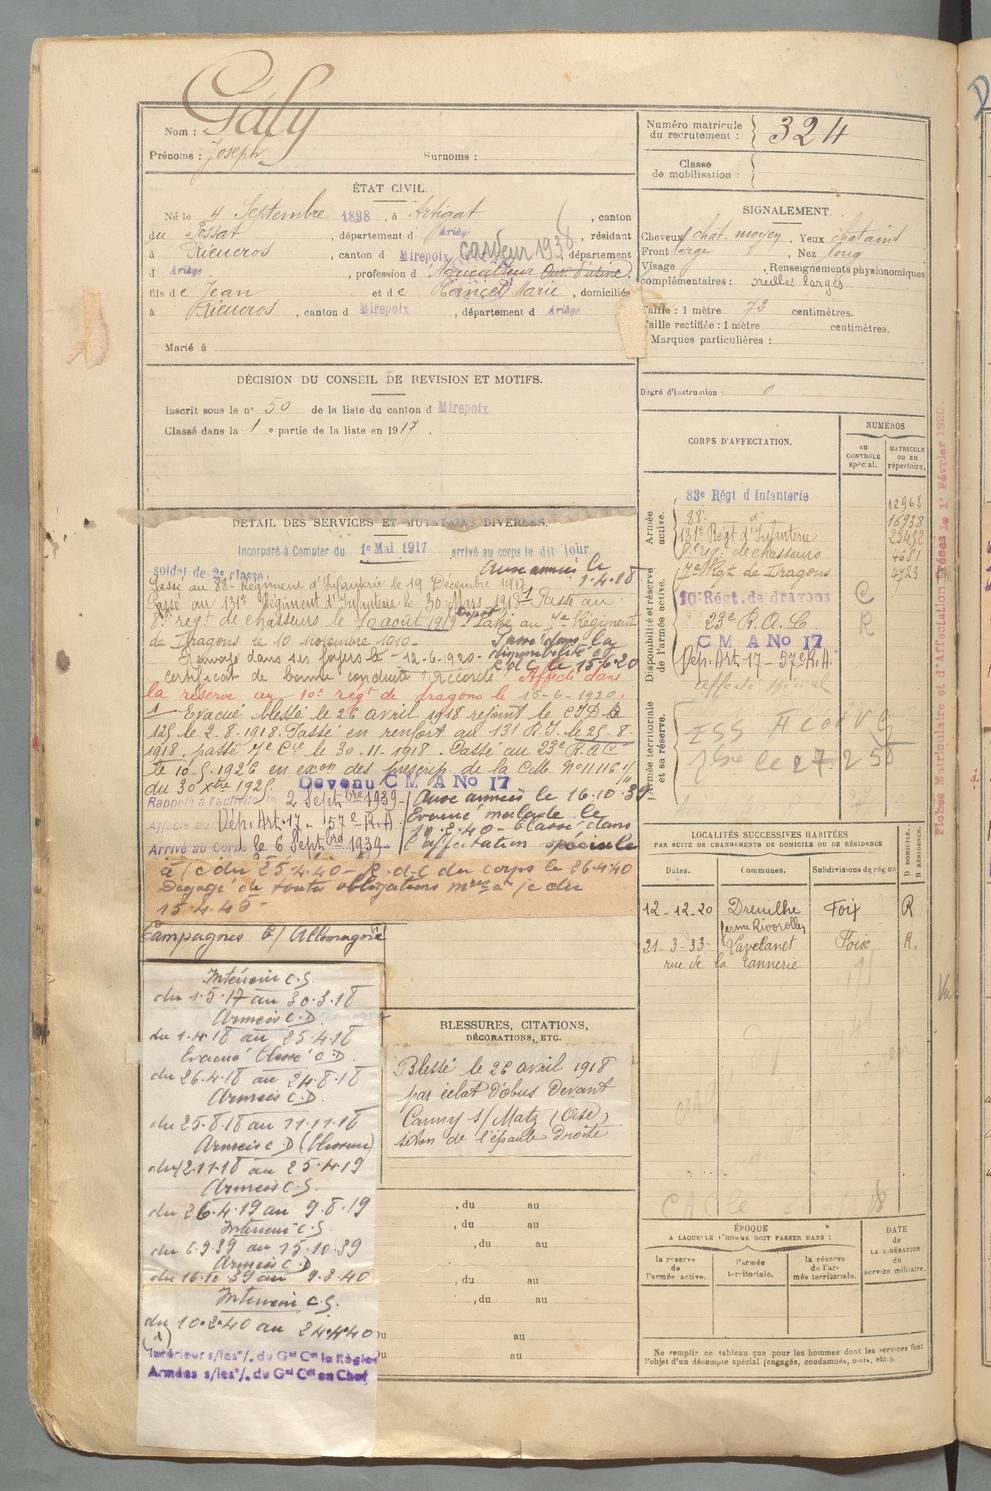 Galy
Nom :
Prénoms : Joseph Surnoms :
ÉTAT CIVIL.
Né le 4 Septembre 1898, à Artigat, canton
du Fossat, département d Ariège, résidant
à Rieucros, canton d Mirepoix, département
cardeur 1938
d Ariège, profession d Agriculteur
fils de Jean et de Marie, domiciliés
à Rieucros, canton d Mirepoix, département d Ariège
Marié à
DÉCISION DU CONSEIL DE REVISION ET MOTIFS.
Inscrit sous le n° 50 de la liste du canton d Mirepoix
Classé dans la 1 e partie de la liste en 1917.
DÉTAIL DES SERVICES ET MUTATIONS DIVERSES.
Incorporé à Compter du 1er Mai 1917 arrivé au corps le dit jour
soldat de 2e classe. Aux armées le
1.4.18
Passé au 88e Régiment d'Infanterie le 19 Décembre 1917
Passé au 131e Régiment d'Infanterie le 30 Mars 1918 1 Passé au
8e reg' de chasseurs le 10 août 1919 Passé au 7e Régiment
de Dragons le 10 novembre 1919
Passé dans la
disponibilité
Renvoyé dans ses foyers le 12-6-1920 le 15.6.20
certificat de bonne conduite "Accordé" Affecté dans
la réserve au 10e régt de dragons le 15-6-1920.
1 Evacué blessé le 26 avril 1918 rejoint le CID
125 le 2-8-1918. Passé en renfort au 131 RI le 25-8-
1918, passé 7e Cie le 30-11-1918. Passé au 23e R.A.C
le 10-5-1926 en exon des prescrip. de la C.M. No 11.116
du 30 xbre 1925. Devenu C M A No 17
Rappelé à l'activité le 2 Septbre 1939
Affecté au Dép. Art. 17 - 57e R.A.
Arrivé au Corps le 6 Septbre 1939
Aux armées le 16.10.39
Evacué malade le
10.2.40 - Classé dans
l'affectation spéciale
à /c du 25.4.40 - R.d.C du corps le 26.4.40
Dégagé de toutes obligations mres à /c du
15.4.45-
Campagnes C/ Allemagne
Intérieur C.S.
du 1.5.17 au 30.3.18
Armées C.D
du 1.4.18 au 25.4.18
Evacué blessé C.D.
du 26.4.18 au 24.8.18
Armées C.D.
du 25.8.18 au 11.11.18
Armées C.D (blessure)
du 12.11.18 au 25.4.19
Armées C.S.
du 26.4.19 au 9.8.19
Intérieur C.S.
du 6.9.39 au 15.10.39
Armées C.D
du 16.10.39 au 9.2.40
Intérieur C.S.
du 10.2.40 au 24.4.40
Intérieur s/les °/. du Gal Ct la Région
Armées s/les °/. du Gal Ct en Chef
BLESSURES, CITATIONS,
DÉCORATIONS, ETC.
Blessé le 26 avril 1918
par éclat d'obus devant
Canny s/Matz (Oise)
séton de l'épaule droite
, du au
, du au
, du au
, du au
, du au
Du au
au
Numéro matricule
du recrutement : 324
Classe
de mobilisation :
SIGNALEMENT.
Cheveux chat. moyen, Yeux chatains
Front large Nez long
Visage , Renseignements physionomiques
complémentaires : oreilles larges
Taille : 1 mètre 73 centimètres.
Taille rectifiée : 1 mètre centimètres.
Marques particulières :
Degré d'instruction : 0
CORPS D'AFFECTATION.
NUMÉROS
AU CONTRÔLE spécial.
MATRICULE OU AU répertoire.
Armée active.
83e Régt d'Infanterie 12968
88e d° 16938
131e Régt d'Infanterie 23452
8e reg' de chasseurs 4681
7e Rgt de Dragons 4723
Disponibilité et réserve de l'armée active.
10e Régt. de dragons
23e R.A.C.
C M A No 17
Dép. Art. 17 - 57e R.A.
affecté spécial
C
R
Armée territoriale et sa réserve.
le 27.2.50
LOCALITÉS SUCCESSIVES HABITÉES
PAR SUITE DE CHANGEMENTS DE DOMICILE OU DE RÉSIDENCE
D DOMICILE. R RÉSIDENCE.
Dates. Communes. Subdivisions de région
12-12-20 Dreuilhe Foix R
21-3-33- Lavelanet Foix R.
rue de la Tannerie
ÉPOQUE
A LAQUELLE L'HOMME DOIT PASSER DANS :
DATE
de
LA LIBÉRATION
du
service militaire.
la réserve de l'armée active.
l'armée territoriale.
la réserve de l'armée territoriale.
Ne remplir ce tableau que pour les hommes dont les services font
l'objet d'un décompte spécial (engagés, condamnés, omis, etc.).
Fiches Matriculaire et d'Affectation créées le 1er Février 1920.